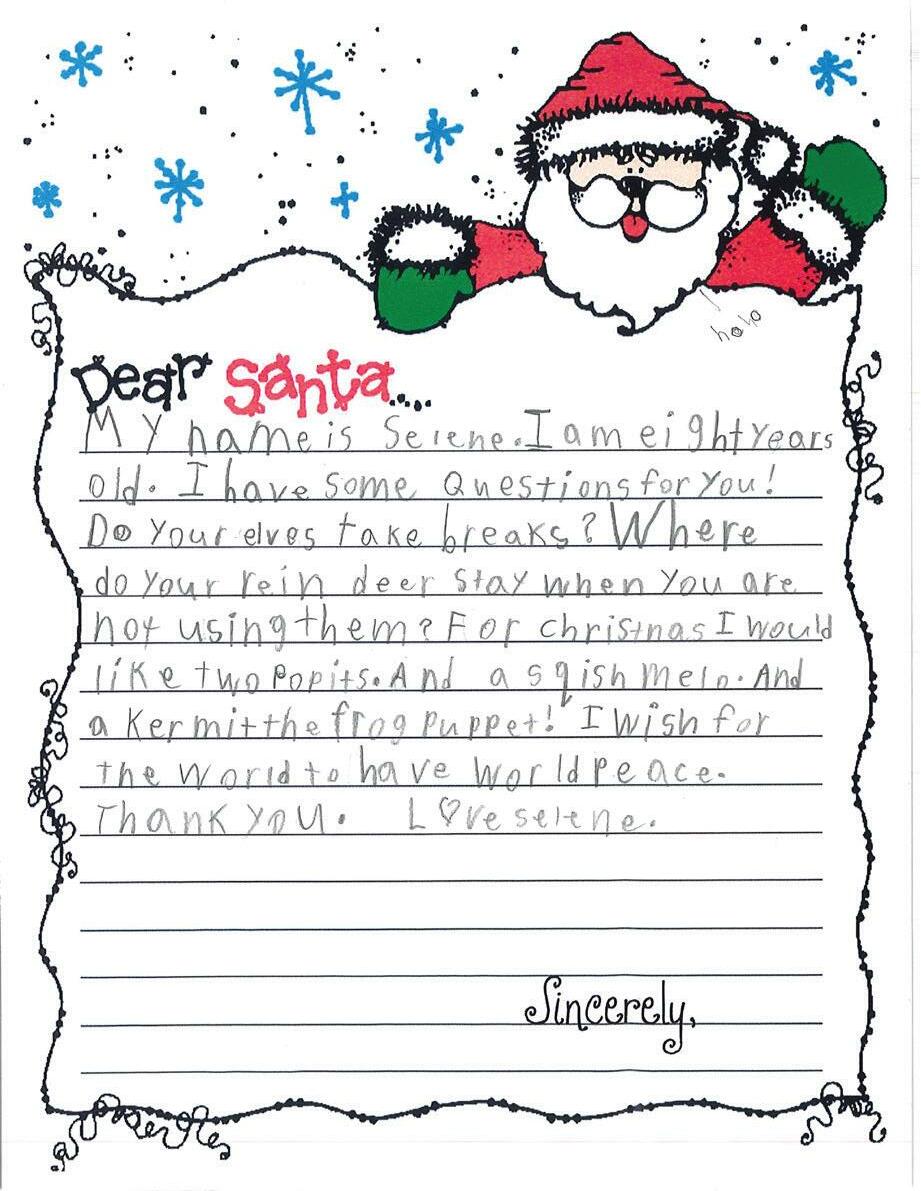 hoho
Dear Santa...
My name is Serene. I am eight years
old. I have some Questions for you!
Do your elves take breaks? Where
do your rein deer stay when you are
not using them? For christmas I would
like two Popits. And a sqish melo. And
a Kermit the frog puppet! I wish for
the world to have world peace.
Thank you. L♡ve selene.
Sincerely,